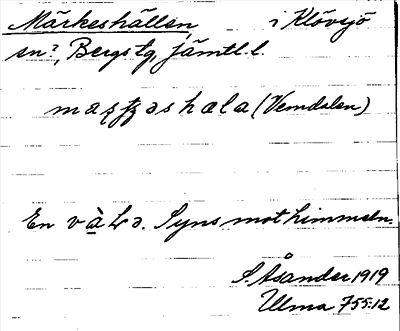 Märkeshällen i Klövsjö
sn?, Bergs tg, Jämtl. l.
(Vemdalen)
En Syns mot himmeln.
S. Åsander 1919
Ulma 755:12